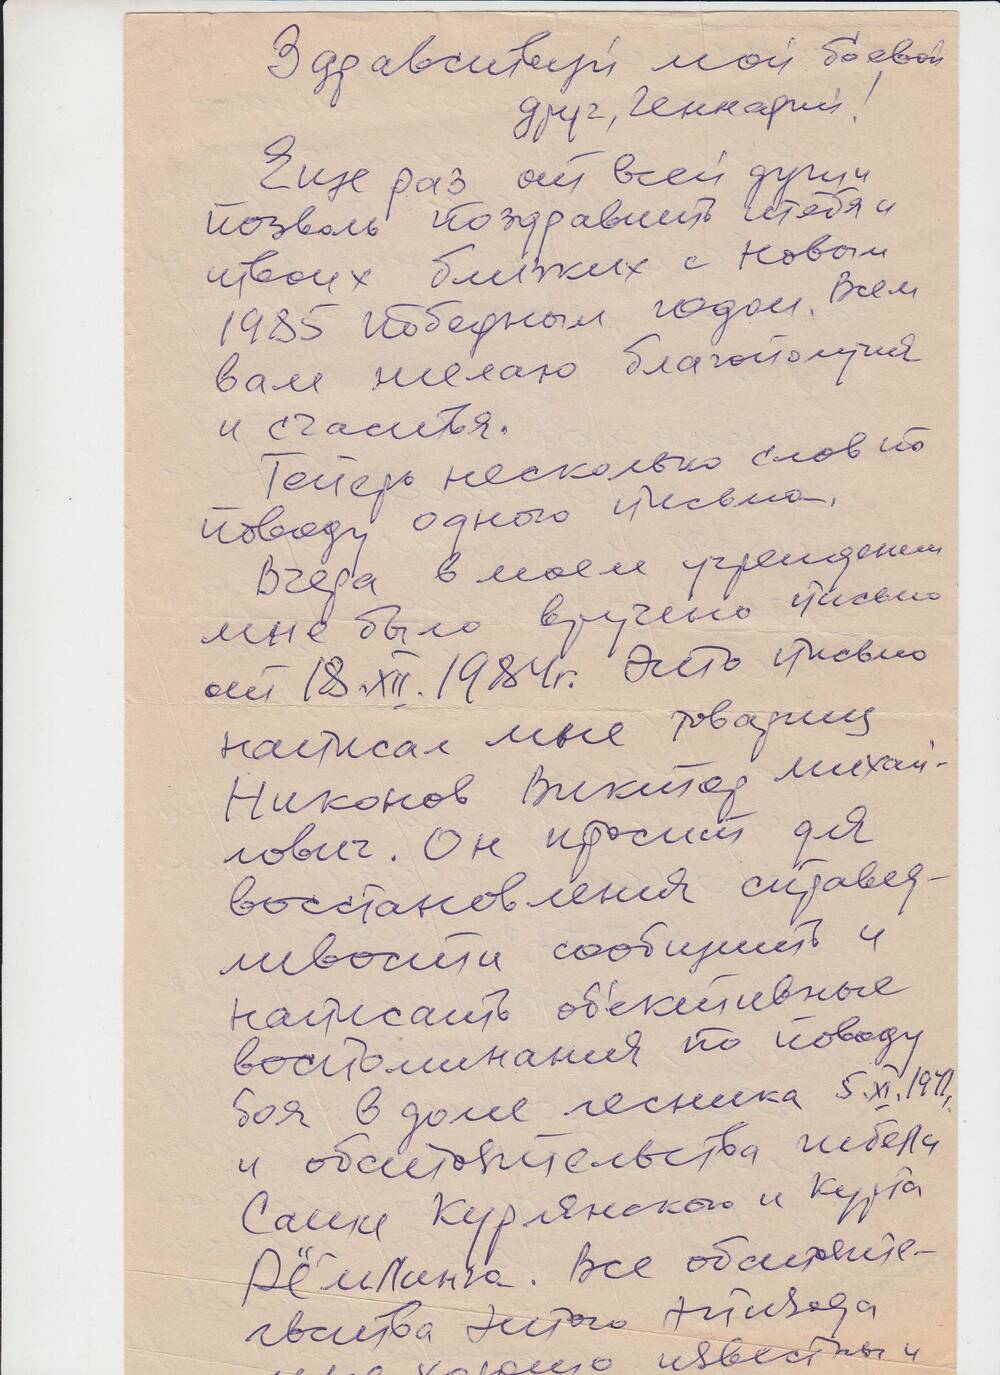 Здравствуй мой боевой
друг, Геннадий!
Еще раз от всей души
позволь поздравить тебя и
твоих близких с новым
1985 победным годом. Всем
вам желаю благополучия
и счастья.
Теперь несколько слов по
поводу одного письма.
Вчера в моем учреждении
мне было вручено письмо
от 18.XII.1984г. Это письмо
написал мне товарищ
Никонов Виктор Михай-
лович. Он просит для
восстановления справед-
ливости сообщить и
написать обективные
воспоминания по поводу
боя в доме лесника 5.XI.1941г.
и обстоятельства гибели
Сашки Курлянского и Курта
Рёмлинга. Все обстояте-
льства этого эпизода
мне хорошо известны и